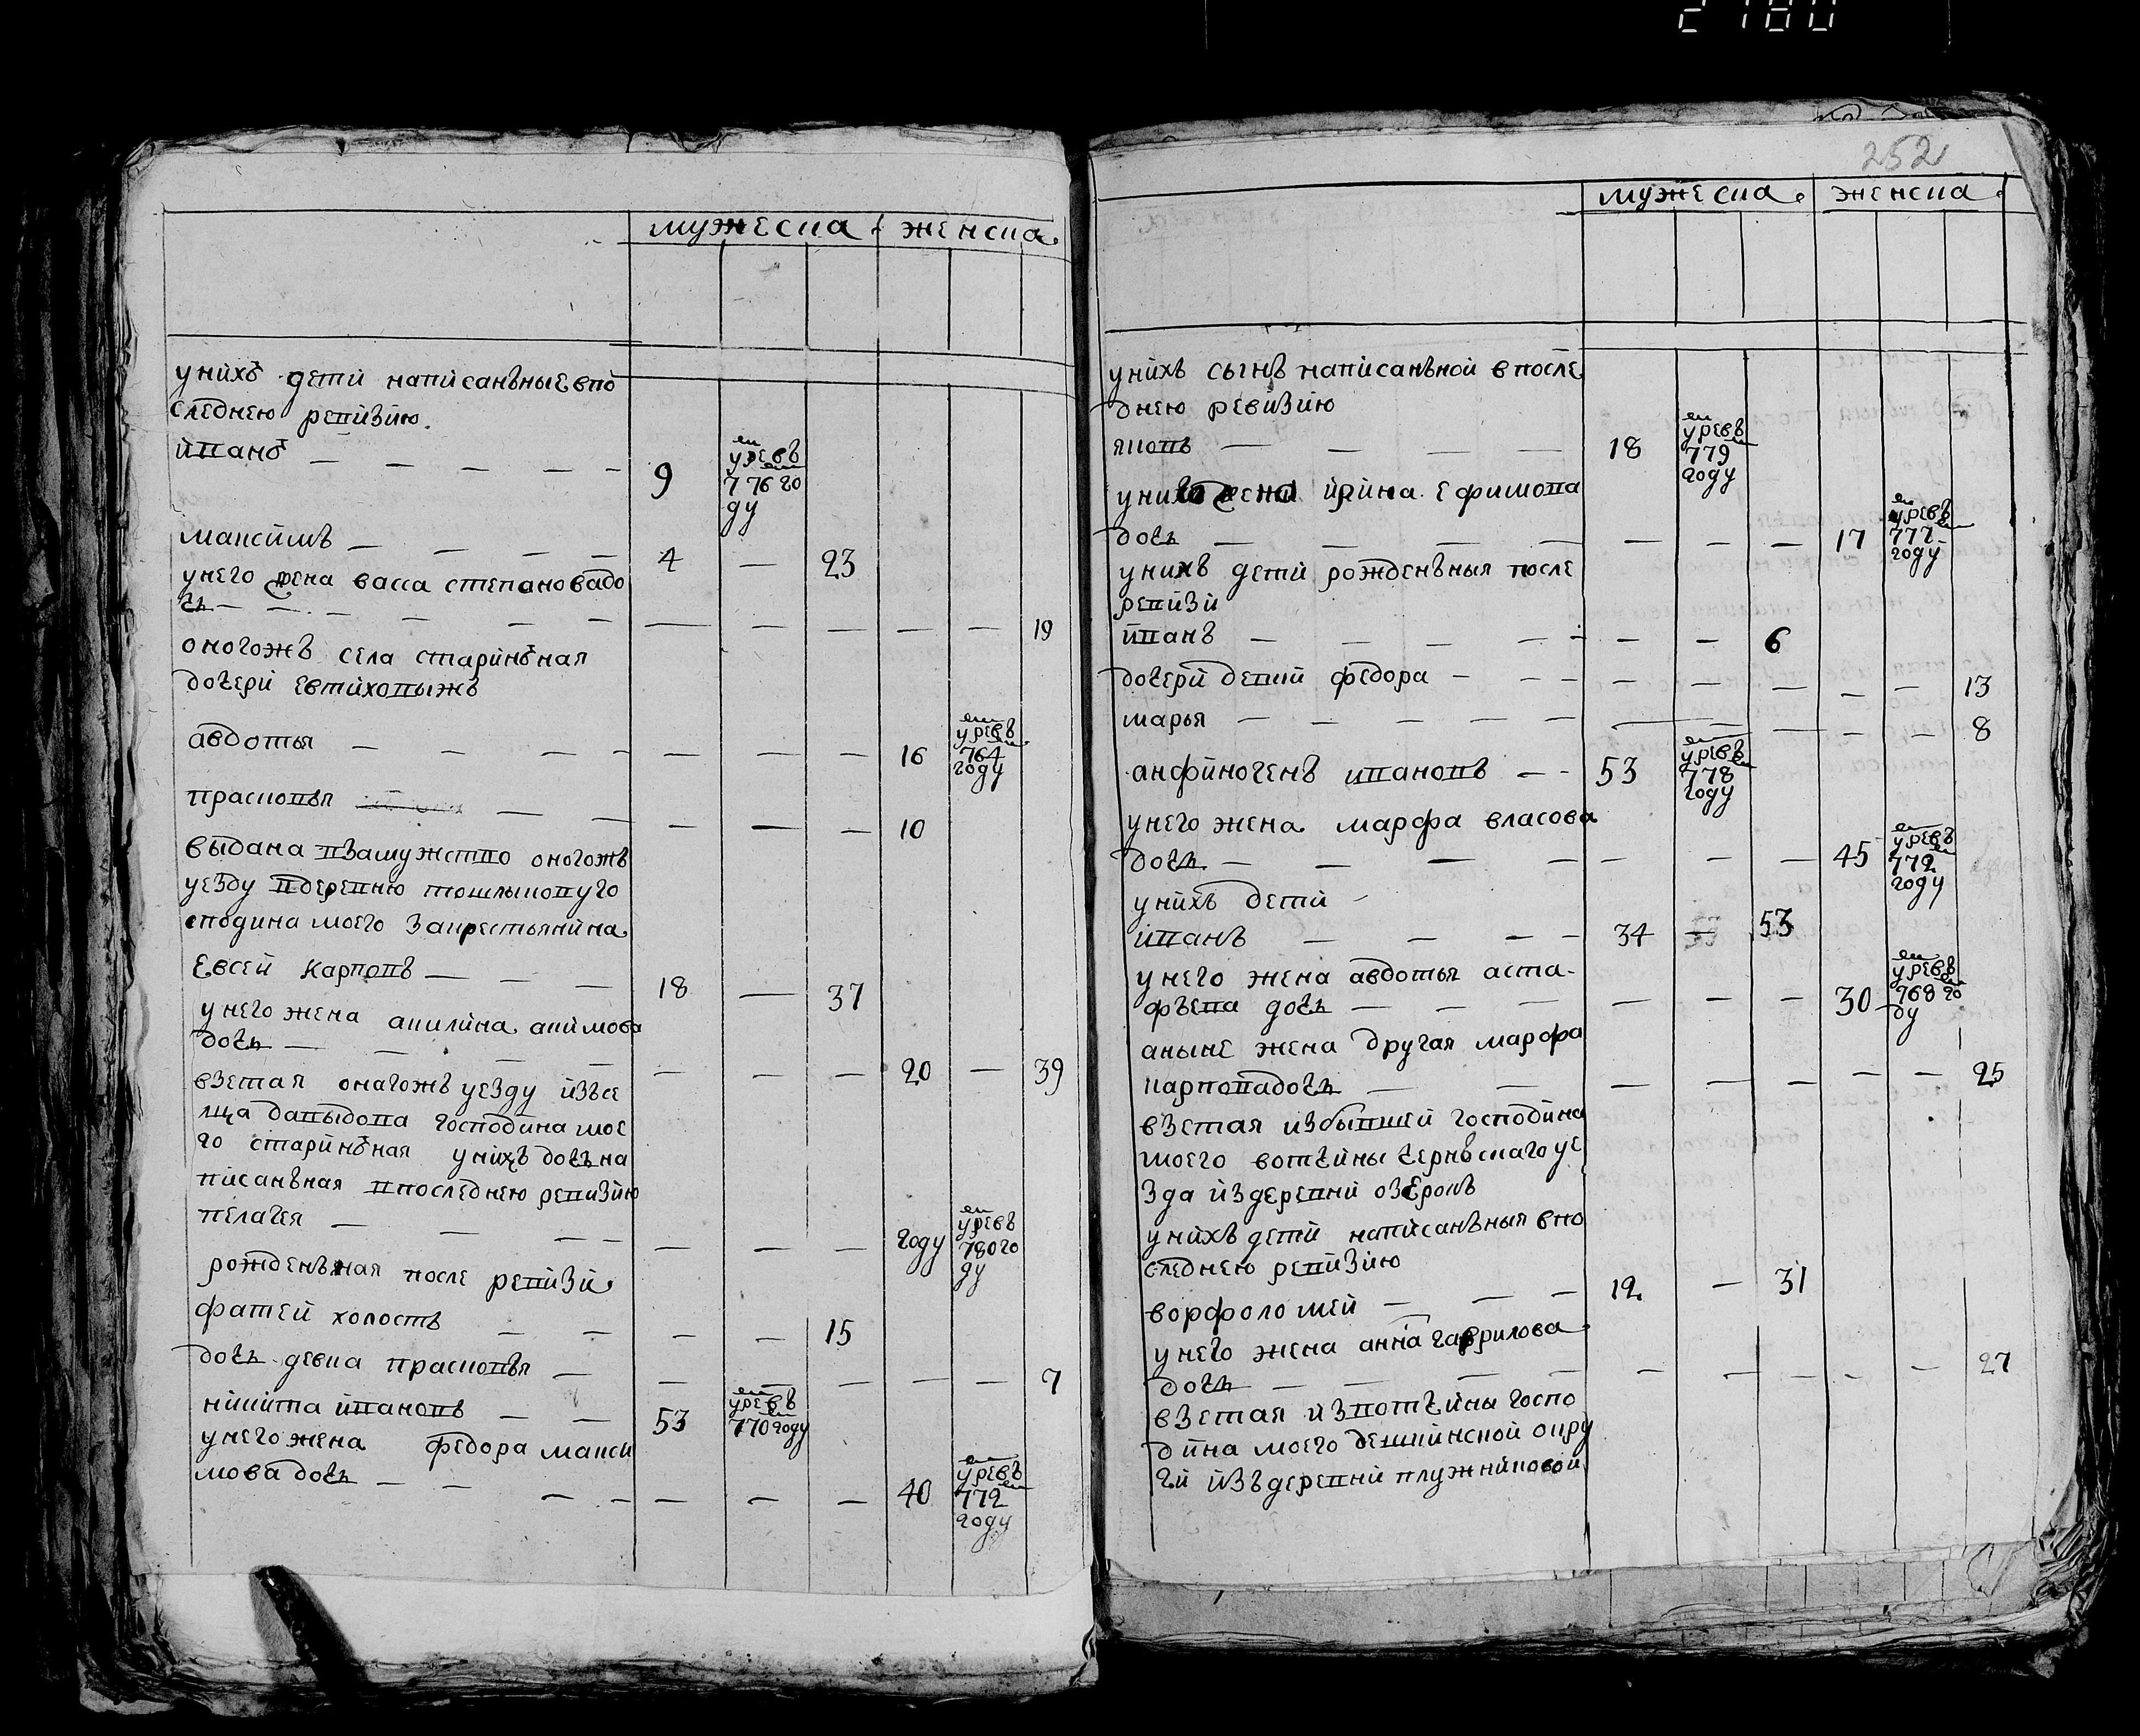 2780
мужеска. женска.
у них детй напйсанъные в по
следнею ревизию.
йванъ — — — — — 9 умръ в 776 го ду
максимъ — — — — 4 — 23
у него жена васса степанова до
чь — — — — — — — — — — — 19
оногожъ села старинъная
дочери евтиховыжъ
авдотья — — — — — — — 16 умръ в 764 году
прасковья — — — — — 10
выдана взамужство оногожъ
уезду в деревню тошлыкову го
сподина моего за крестьянина
Евсей Карповъ — — — 18 — 37
у него жена акилина акимова
дочь — — — — — — — 20 — 39
взетая онагожъ уезду изъ се
льца давыдова господина мое
го старинъная у нихъ дочь на
писанъная в последнею ревизию
пелагея — — — — — — — году умръ в 780 го ду
рожденъная после ревизи
фатей холостъ — — — — 15
дочь девка прасковья — — — — — — — 7
никита ивановъ — — 53 умръ в 770 году
у него жена федора макси
мова дочь — — — — — — — 40 умръ в 772 году
252
мужеска. женска.
у нихъ сынъ написанъной в после
днею ревизию
яковъ — — — — 18 умръ в 779 году
у него жена ирина ефимова
дочь — — — — — — — 17 умръ в 777 году
у нихъ дети рожденъныя после
ревизи
иванъ — — — — — — 6
дочери девки федора — — — — — — — — 13
марья — — — — — — — — — — 8
анфиногенъ ивановъ — — 53 умръ в 778 году
у него жена марфа власова
дочь — — — — — — — 45 умръ в 772 году
у нихъ дети —
иванъ — — — — 34 — 53
у него жена авдотья аста-
фьева дочь — — — — — — 30 умръ в 768 го ду
а ныне жена другая марфа
карпова дочь — — — — — — — 25
взетая из бывшей господина
моего вотчины чернъскаго уе
зда из деревни озерокъ
у нихъ дети написанъныя в по
следнею ревизию
ворфоломей — — — 12 — 31
у него жена анна гаврилова
дочь — — — — — — — — — 27
взетая из вотчины госпо
дина моего дешкинской окру
ги изъ деревни плужниковой